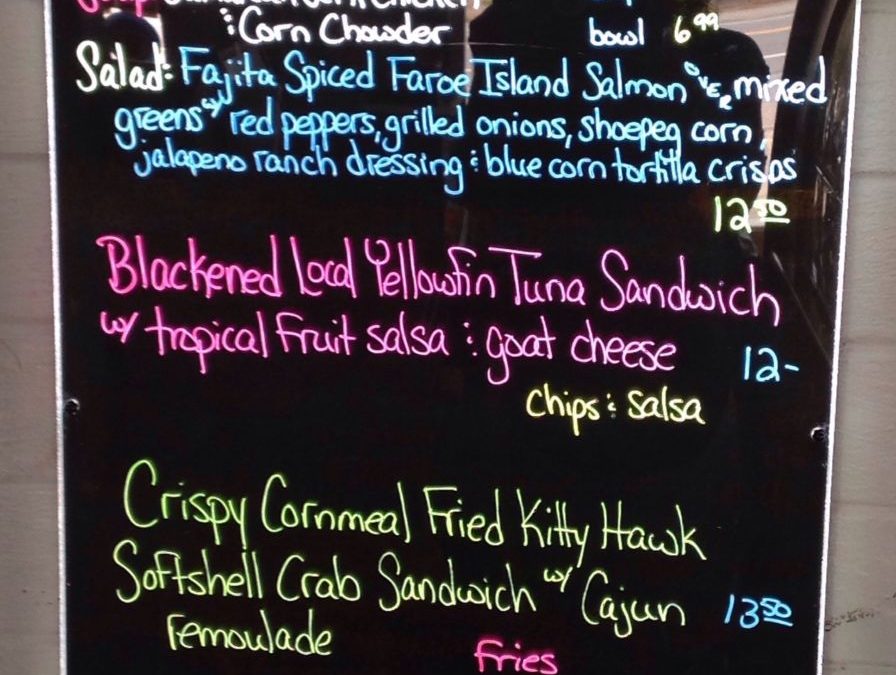 & Corn Chowder bowl 6.99
Salad: Fajita Spiced Faroe Island Salmon over mixed
greens w/ red peppers, grilled onions, shoepeg corn,
jalapeno ranch dressing & blue corn tortilla crisps
12.50
Blackened Local Yellowfin Tuna Sandwich
w/ tropical fruit salsa & goat cheese 12-
chips & salsa
Crispy Cornmeal Fried Kitty Hawk
Softshell Crab Sandwich w/ Cajun 13.50
remoulade
fries